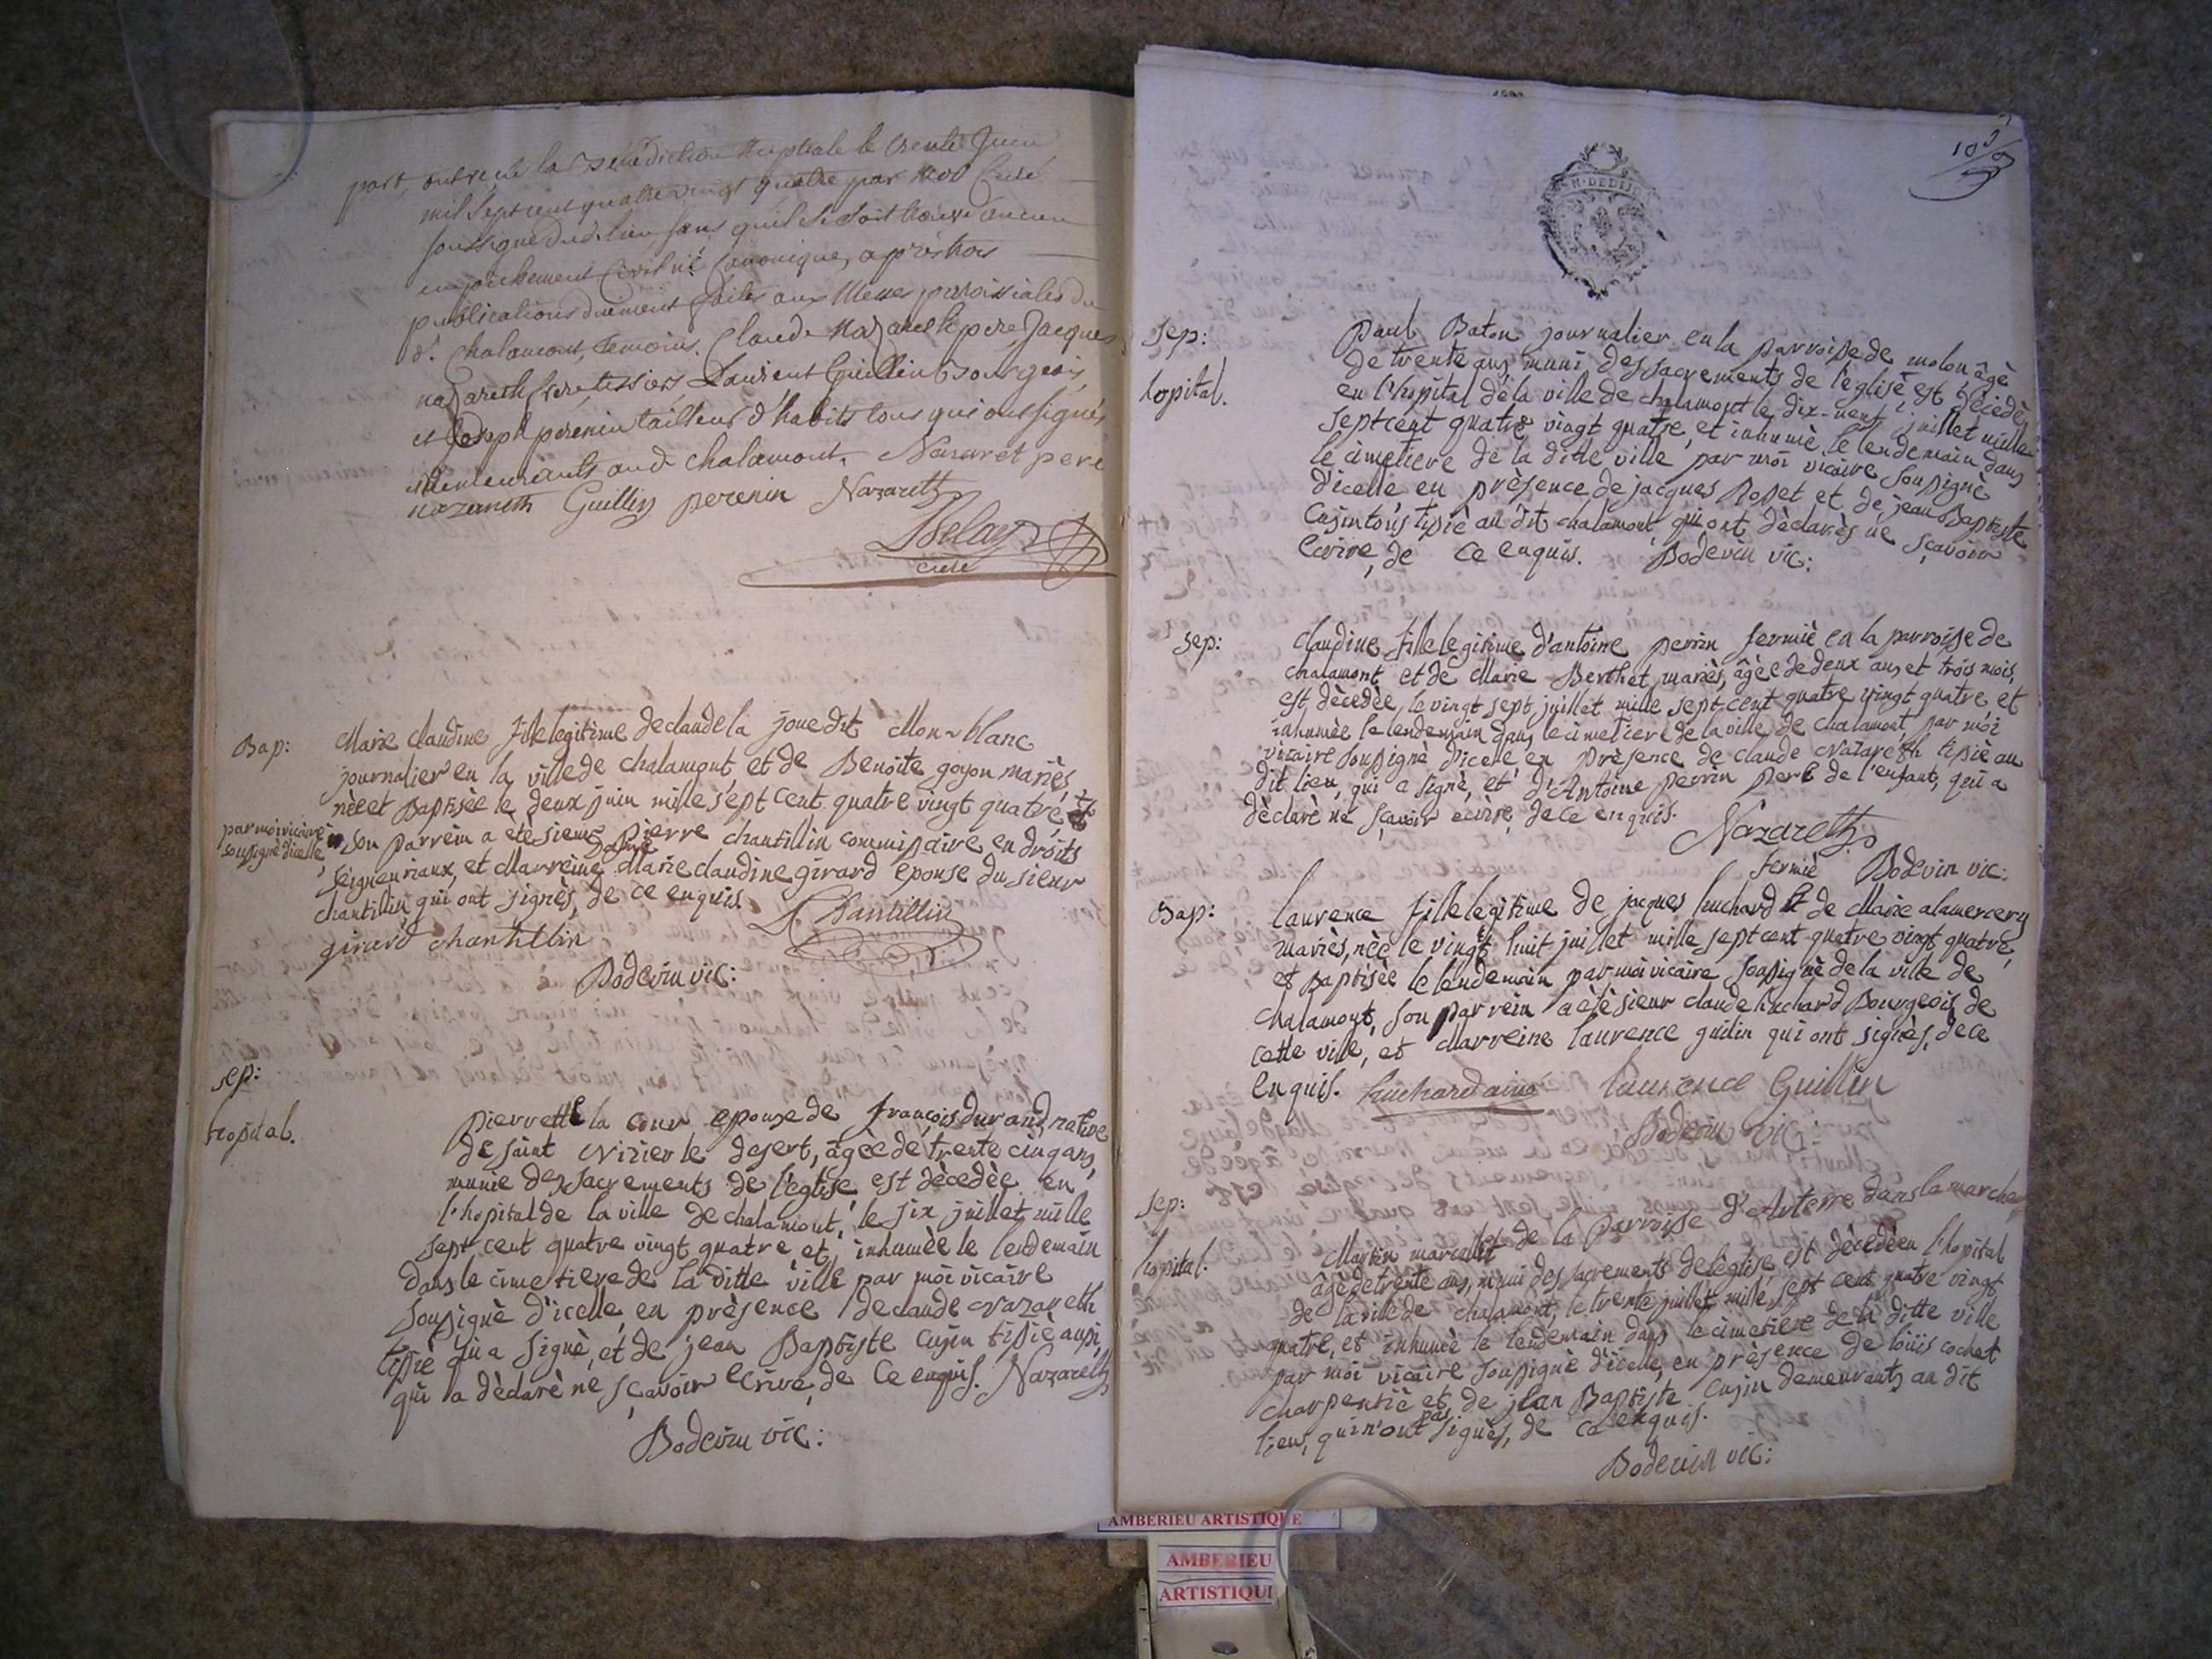 part, ont reçu la Bénédiction Nuptiale le trente Juin
mil sept cent quatre vingt quatre par Moi Curé
soussigné dud. lieu sans quil se soit trouvé aucun
empêchement Civil ni Canonique, après trois
publications duement faites aux Messes paroissiales du
d. Chalamont, témoins. Claude Nazareth pere, Jacques
nazareth frere, tissiers Laurent Guillin Bourgeois,
et Joseph perenin tailleur d'habits tous qui ont signés
et demeurants aud. chalamont. Nazaret pere
nazareth Guillin perenin Nazareth
Belay
curé
Bap: Marie claudine fille legitime de claude la joue dit Mon-blanc
journalier en la ville de chalamont et de Benoite goyon mariès,
nèe et Baptisèe le deux juin mille sept cent quatre vingt quatre
par moi vicaire
soussignè d'icelle
son parrein a ètè sieur pierre chantillin commissaire en droits
Seigneuriaux, et Marreine Dame Marie claudine girard epouse du sieur
chantillin qui ont signès, de ce enquis. Chantillin
girard chantillin
Bodevin vic:
Sep:
hopital.
pierrette la cour epouse de françois durand, native
de saint Nizier le desert, âgèe de trente cinq ans,
munie des sacrements de l'eglise est dècedèe en
l'hopital de la ville de chalamont, le six juillet mille
sept cent quatre vingt quatre et inhumèe le lendemain
dans le cimetiere de la ditte ville par moi vicaire
soussignè d'icelle, en prèsence de claude Nazareth
tissiè qui a signè, et de jean Baptiste cusin tissiè aussi,
qui a dèclarè ne sçavoir ecrire, de ce enquis. Nazareth
Bodevin vic:
103
Sep:
hopital.
paul Baton journalier en la parroisse de molon âgè
de trente ans, muni des sacrements de l'èglise est dècedè
en l'hopital de la ville de chalamont le dix-neuf juillet mille
sept cent quatre vingt quatre, et inhumè le lendemain dans
le cimetiere de la ditte ville par moi vicaire soussignè
d'icelle en prèsence de jacques Rosset et de jean Baptiste
cusin tous tissiè au dit chalamont qui ont dèclarès ne sçavoir
ecrire, de ce enquis. Bodevin vic:
Sep: claudine fille legitime d'antoine perrin fermiè en la parroisse de
chalamont et de Marie Berthet mariès, âgèe de deux ans et trois mois,
est dècedèe le vingt sept juillet mille sept cent quatre vingt quatre et
inhumèe le lendemain dans le cimetiere de la ville de chalamont par moi
vicaire soussignè d'icelle en prèsence de claude Nazareth tissiè au
dit lieu, qui a signè, et d'Antoine perrin pere de l'enfant, qui a
dèclarè ne sçavoir ecrire, de ce enquis. Nazareth
fermiè Bodevin vic:
Bap: laurence fille legitime de jacques huchard et de Marie alamercery
mariès, nèe le vingt huit juillet mille sept cent quatre vingt quatre,
et Baptisèe le lendemain par moi vicaire soussignè de la ville de
chalamont, son parrein a ètè sieur claude huchard Bourgeois de
cette ville, et Marreine laurence guilin qui ont signès, de ce
enquis. huchard ainé laurence Guillin
Bodevin vic:
Sep:
hopital. Martin marcellet de la parroisse d'Auterre dans la marche
âgè de trente ans, muni des sacrements de l'èglise est dècedè en l'hopital
de la ville de chalamont, le trente juillet mille sept cent quatre vingt
quatre, et inhumè le lendemain dans le cimetiere de la ditte ville
par moi vicaire soussignè d'icelle, en prèsence de loüis cochet
charpentiè et de jean Baptiste cusin demeurants au dit
lieu, qui n'ont pas signès, de ce enquis.
Bodevin vic:
AMBERIEU ARTISTIQUE
AMBERIEU
ARTISTIQUE